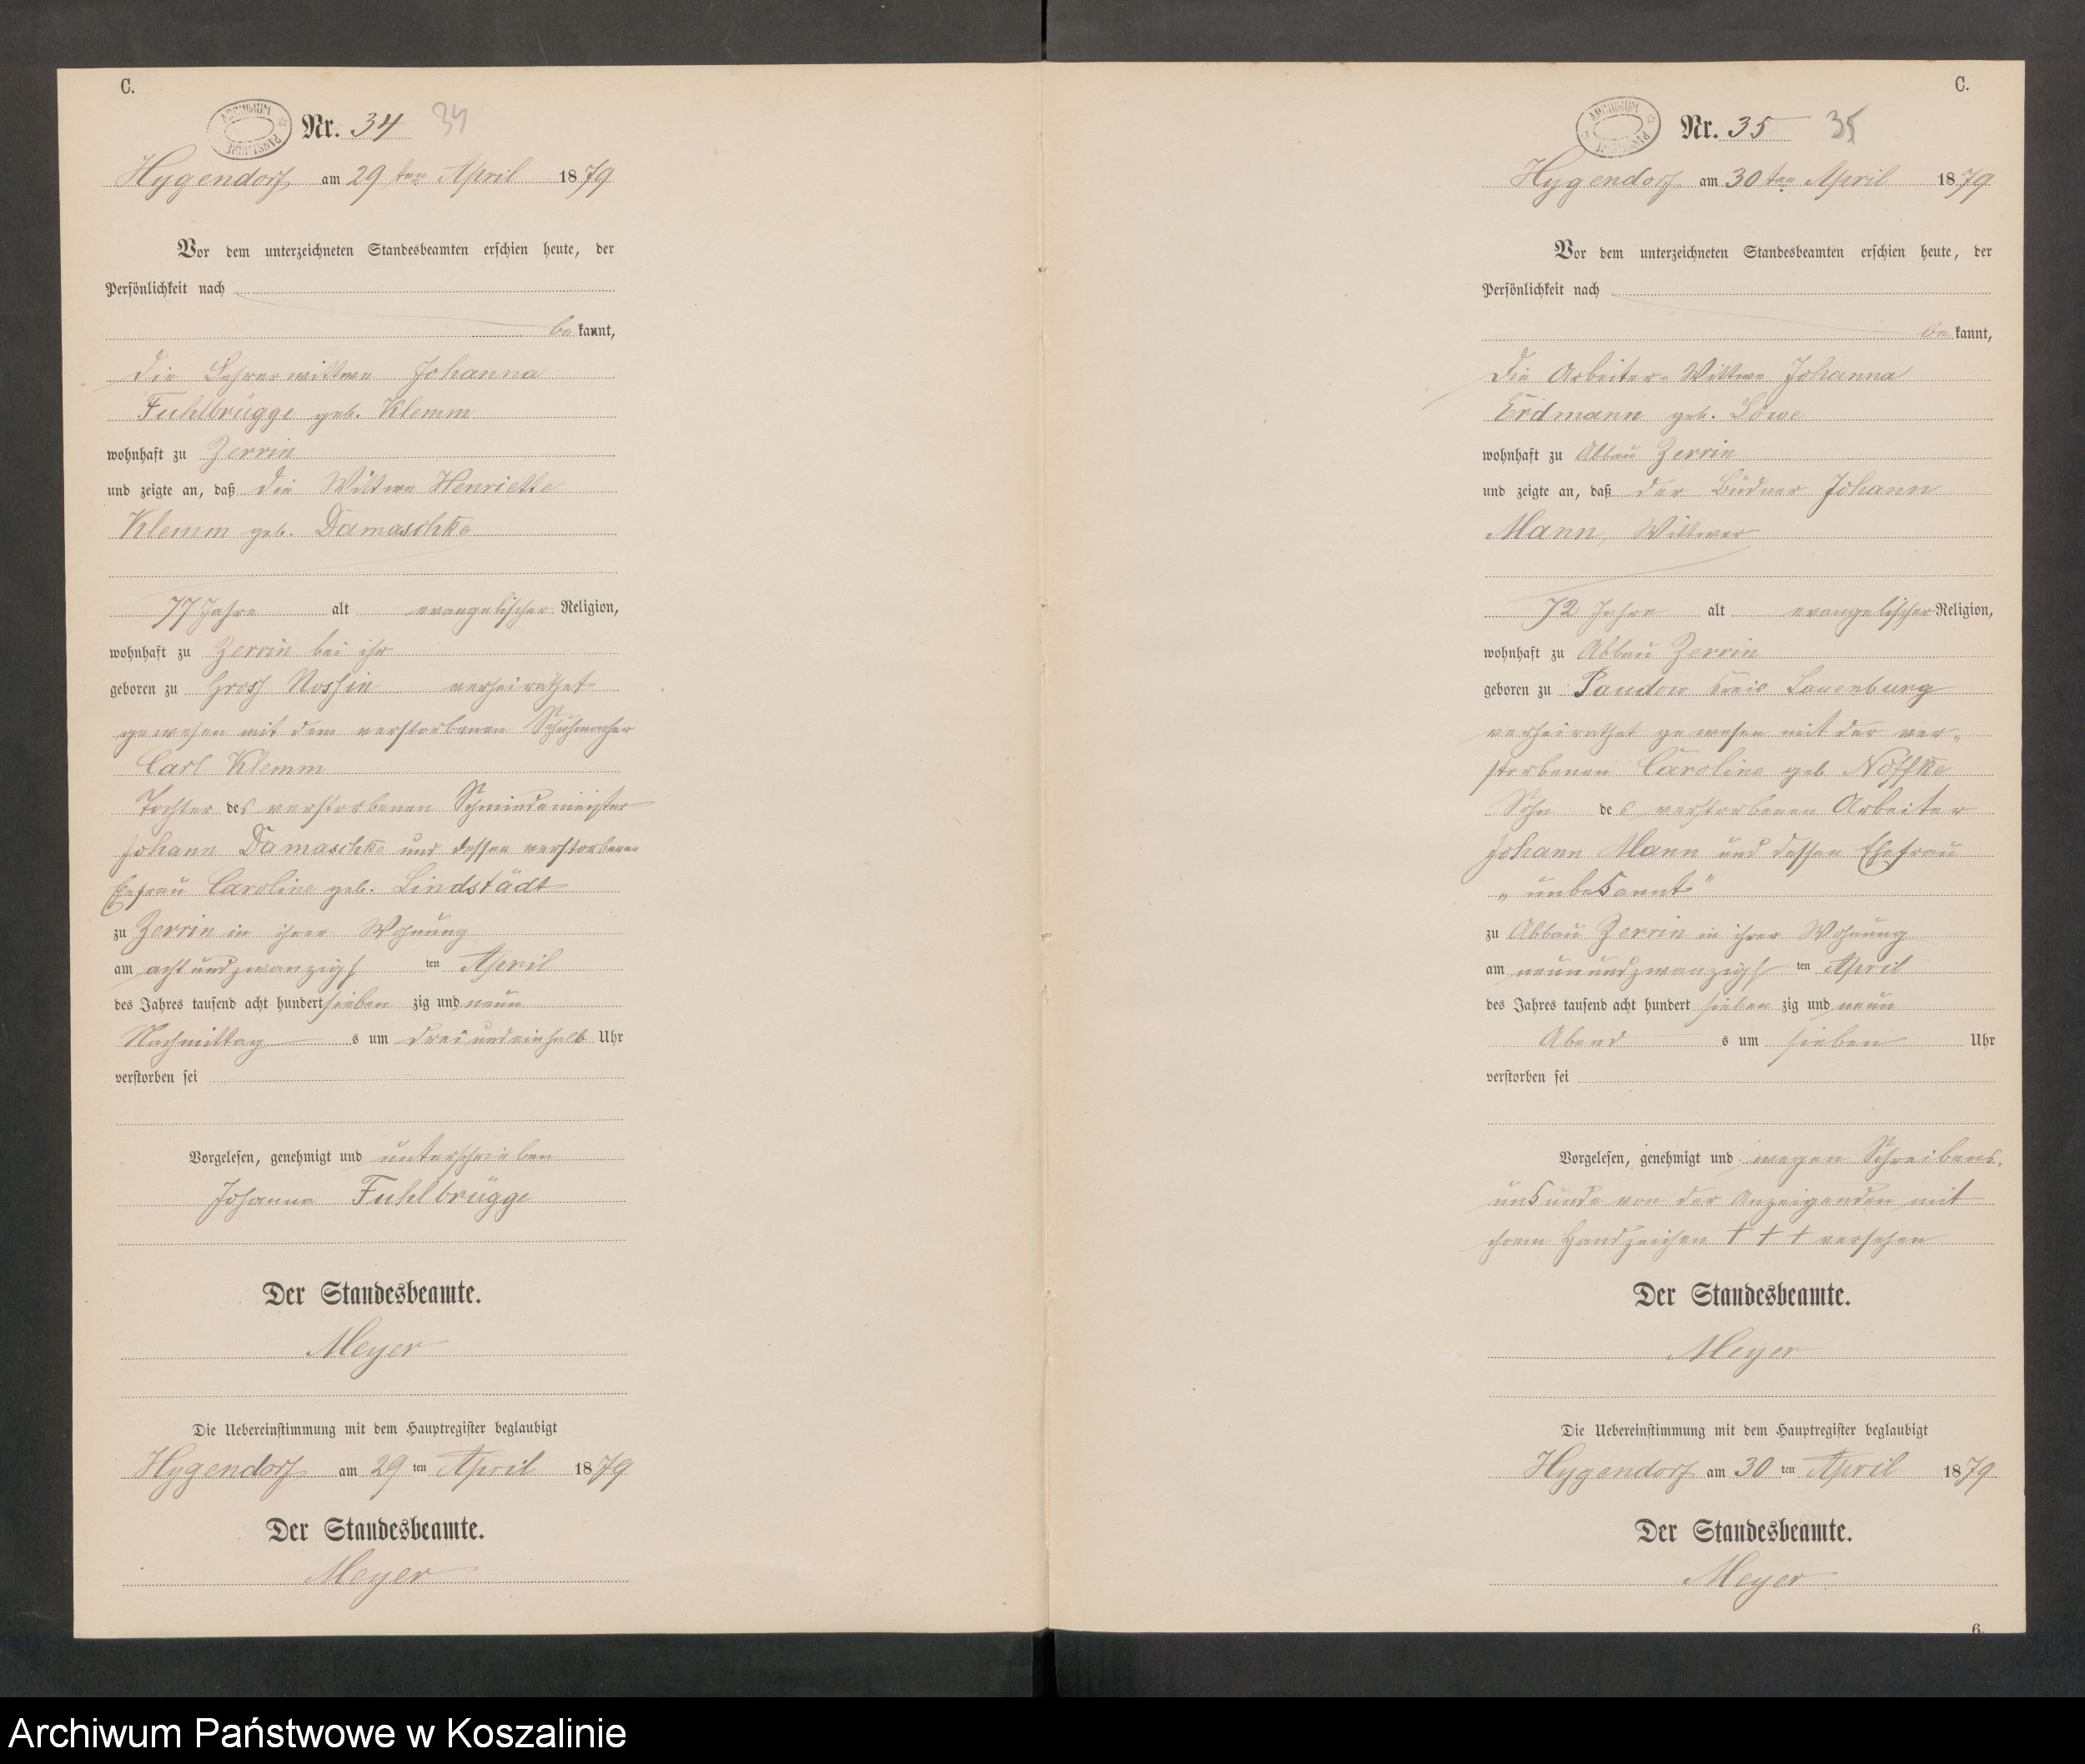 C.
Nr. 34 34
Hygendorf am 29 ten April 1879
Vor dem unterzeichneten Standesbeamten erschien heute, der
Persönlichkeit nach
be kannt,
die Lehrerwittwe Johanna
Fuhlbrügge geb. Klemm
wohnhaft zu Zerrin
und zeigte an, daß die Wittwe Henriette
Klemm geb. Damaschke
77 Jahre alt evangelischer Religion,
wohnhaft zu Zerrin bei ihr
geboren zu Gross Nossin verheirathet
gewesen mit dem verstorbenen Schuhmacher
Carl Klemm
Tochter des verstorbenen Schmiedemeister
Johann Damaschke und dessen verstorbenen
Ehefrau Caroline geb. Lindstädt
zu Zerrin in ihrer Wohnung
am achtundzwanzigs ten April
des Jahres tausend acht hundert sieben zig und neun
Nachmittag s um drei undeinhalb Uhr
verstorben sei
Vorgelesen, genehmigt und unterschrieben
Johanna Fuhlbrügge
Der Standesbeamte.
Meyer
Die Uebereinstimmung mit dem Hauptregister beglaubigt
Hygendorf am 29 ten April 1879
Der Standesbeamte.
Meyer
C.
Nr. 35 35
Hygendorf am 30 ten April 1879
Vor dem unterzeichneten Standesbeamten erschien heute, der
Persönlichkeit nach
be kannt,
Die Arbeiter-Wittwe Johanna
Erdmann geb. Löwe
wohnhaft zu Abbau Zerrin
und zeigte an, daß der Büdner Johann
Mann, Wittwer
72 Jahre alt evangelischer Religion,
wohnhaft zu Abbau Zerrin
geboren zu Kreis Lauenburg
verheirathet gewesen mit der ver-
storbenen Caroline geb Noffke
Sohn des verstorbenen Arbeiter
Johann Mann und dessen Ehefrau
„unbekannt"
zu Abbau Zerrin in ihrer Wohnung
am neunundzwanzigs ten April
des Jahres tausend acht hundert sieben zig und neun
Abend s um sieben Uhr
verstorben sei
Vorgelesen, genehmigt und wegen Schreibens-
unkunde von der Anzeigenden mit
ihrem Handzeichen + + + versehen
Der Standesbeamte.
Meyer
Die Uebereinstimmung mit dem Hauptregister beglaubigt
Hygendorf am 30 ten April 1879
Der Standesbeamte.
Meyer
6.
Archiwum Państwowe w Koszalinie